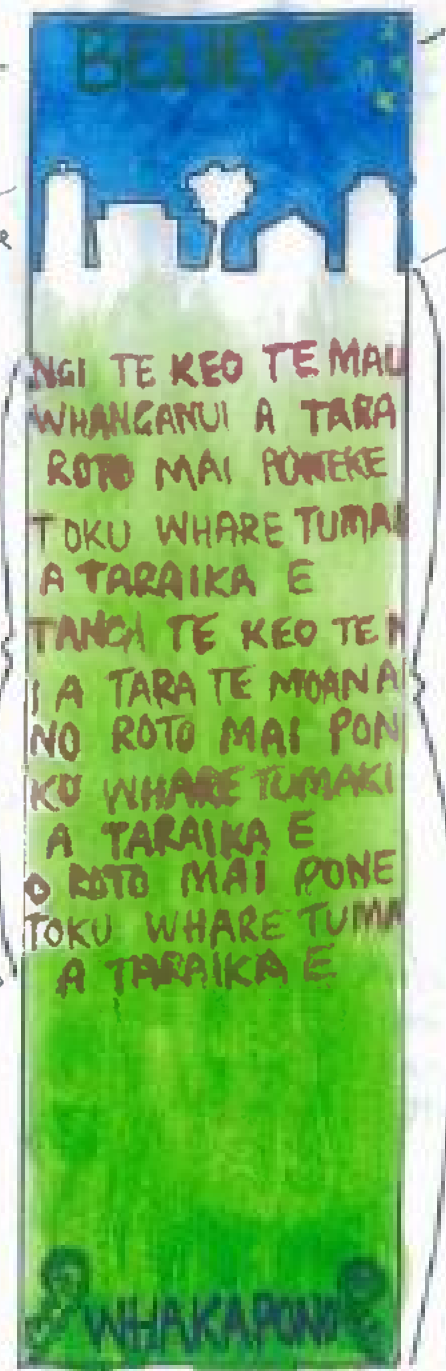 BELIEVE
NGI TE KEO TE MAU
WHANGANUI A TARA
ROTO MAI PONEKE
TOKU WHARE TUMAK
A TARAIKA E
TANGA TE KEO TE M
I A TARA TE MOANA
NO ROTO MAI PON
KU WHARE TUMAKI
A TARAIKA E
O ROTO MAI PONE
TOKU WHARE TUMA
A TARAIKA E
WHAKAPONO